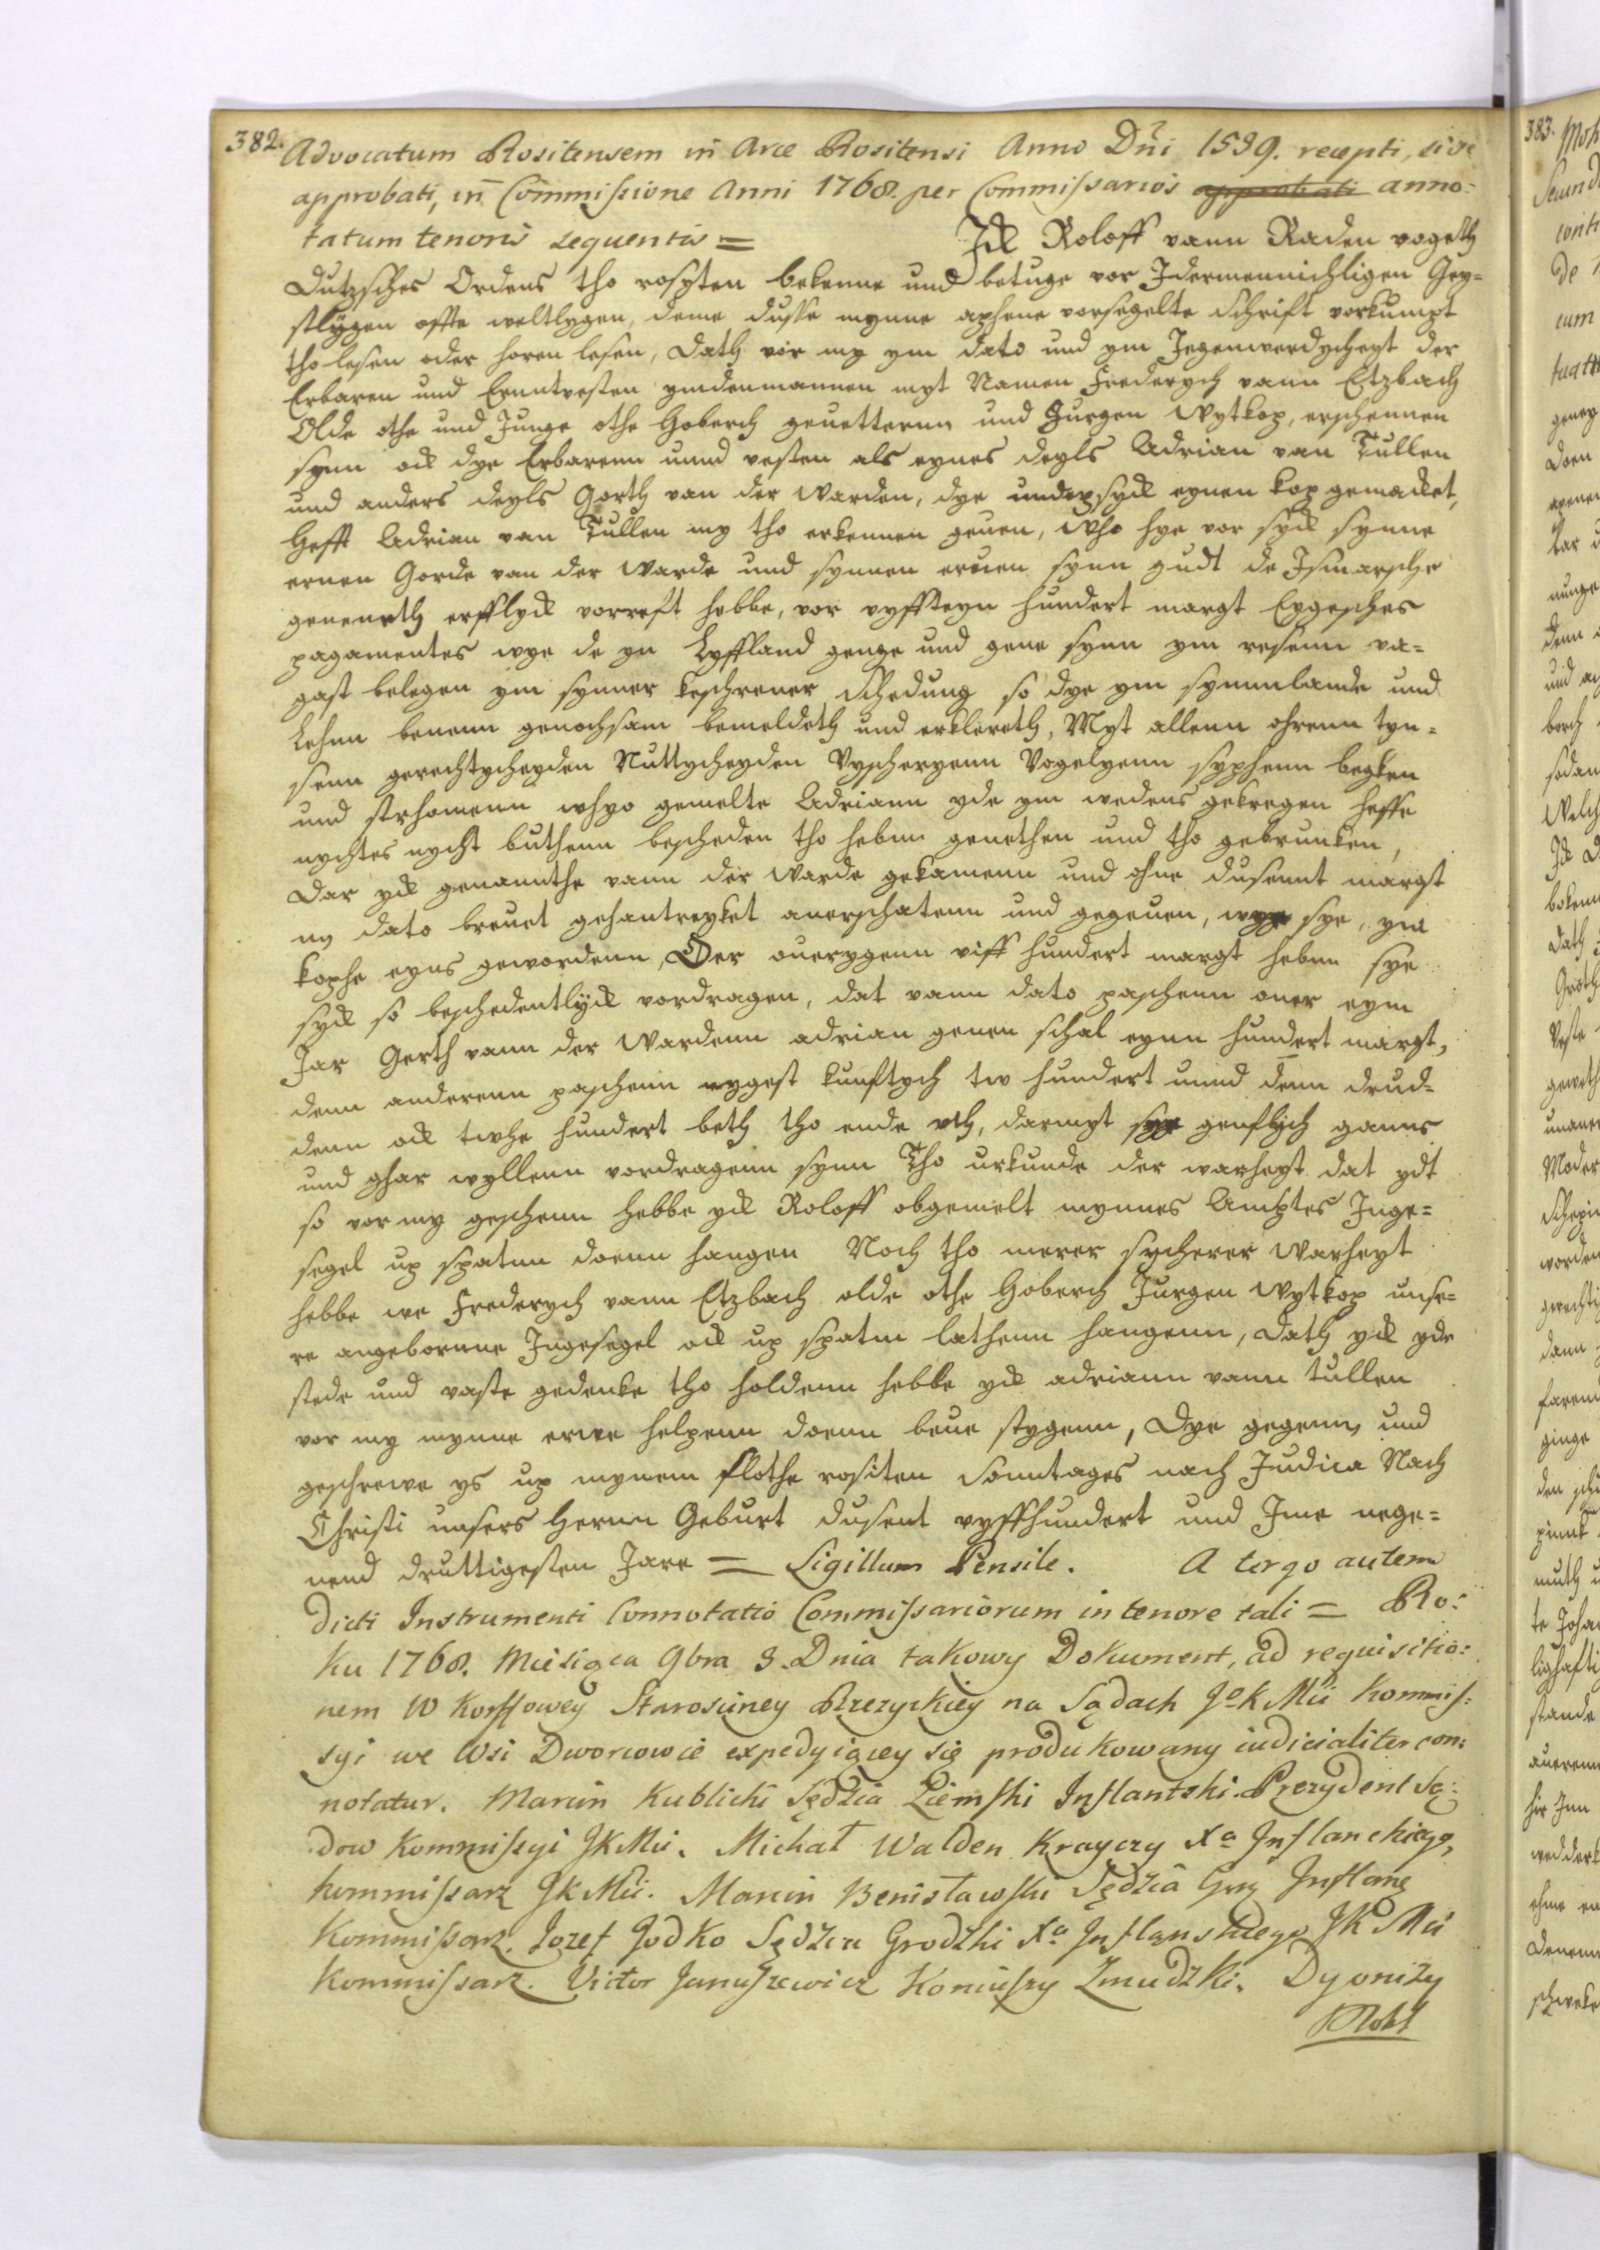 382. Advocatum Rositensem in Arce Rositensi Anno Dn̄i 1539. recepti, sive
approbati, in Commissione Anni 1768. per Commissarios approbati anno:
tatum tenoris sequentis = Ick Roloff vann Raden vogeth
Dutzsches Ordens tho rosyten bekenne und betuge vor Idermennichligen Gey=
stlygen offte weltlygen, deme dusse mynne aphene vorsegelte Schrift vorkumpt
tho lesen oder horen lesen, Dath vor my ym dato und ym Iegenwerdycheyt der
Erbaren und Erentvesten ymdenmannen myt Namen Frederych vann Etzbach
Olde othe und Junge othe Goberch gevetternn und Jurgen Wytkop, erschennen
synn ock dye Erbarenn unnd vesten als eynes deyls Adrian van Tullen
und anders deyls Gorth van der Warden, dye undersyck eynen kop gemacket,
Hefft Adrian van Tullen my tho erkennen geuen, Who hye vor syck synne
ernen Gorde van der Warde und synnen eruen synn gudt de Ismarsche
genenth erfflyck vorreft hebbe, vor vyffteyn hundert margk Rygesches
pagamentes wye de yn Lyffland genge und geue synn ym resenn pa=
gast belegen ym synner beschrener Schedung so dye ym synnlande und
Lehnn benenn genochsam bemeldeth und erklereth, Myt allenn ohrenn tyn=
senn gerechtycheyden Nuttycheyden Vyscheryenn Vogelyenn syphenn beyken
und strhomenn whyo gemelte Adriann yde ym wedens gekregen heffe
nychtes nycht buthenn bescheden tho hebnn genethen und tho gebrunken,
Dar yck genannthe vann der Warde gekamenn und ohne dusennt margk
ny dato breuet gehantreyket auerschatenn und gegeuen, wyge sye, ym
kophe eyns gewordenn, Der ouerygenn viff hundert margk hebnn sye
syck so beschedentlyck vordragen, dat vann dato paschenn ouer eym
Jar Gerth vann der Wardenn adrian geuen schal eynn hundert margk,
denn anderenn paschenn nygest kunftych tw hundert unnd denn drud=
denn ock twhe hundert beth tho ende uth, darmyt sye genslych ganns
und ghar wyllenn vordragenn synn Tho urkunde der warheyt dat ydt
so vor my geschenn hebbe yck Roloff obgemelt mynnes Amptes Inge=
segel up spatnn doenn hangen Noch tho merer sycherer Warheyt
hebbe we Frederych vann Etzbach olde othe Goberch Jurgen Wytkop unse=
re angebornne Ingesegel ock up spatm lathenn hangenn, Dath yck yde
stede und vaste gedenke tho holdenn hebbe yck adriann vann tullen
vor my mynne erwe helpenn doenn beue stygenn, Dye gegenn und
geschrewe ys up mynem slothe rositen Sonntages nach Judica Nach
Christi unsers Hernn Geburt dusent vyffhundert und Jme nege=
nend druttigesten Jare = Sigillum Pensile. A tergo autem
dicti Instrumenti Connotatio Commissariorum in tenore tali = Ro:
ku 1768. Miesiąca 9bra 3. Dnia takowy Dokument, ad requisitio:
nem W Korffowey Starosciney Brzezyckiey na Sądach Jo K Mci Kommis:
syi we Wsi Dworcowie expedyiącey się produkowany iudicialiter con:
notatur. Marcin Kublicki Sędzia Ziemski Inflantski Prezydent Są:
dow Kommissyi JKMci. Michał Walden Krayczy Xa Inflanckiego,
kommissarz JKMci. Marcin Benisławski Sędzia Grg Inflang
Kommissarz. Jozef Jodko Sędzia Grodzki Xa Inflanskiego JK Mci
Kommissarz. Victor Januszewicz Koniuszy Zmudzki. Dyonizy
Plohl